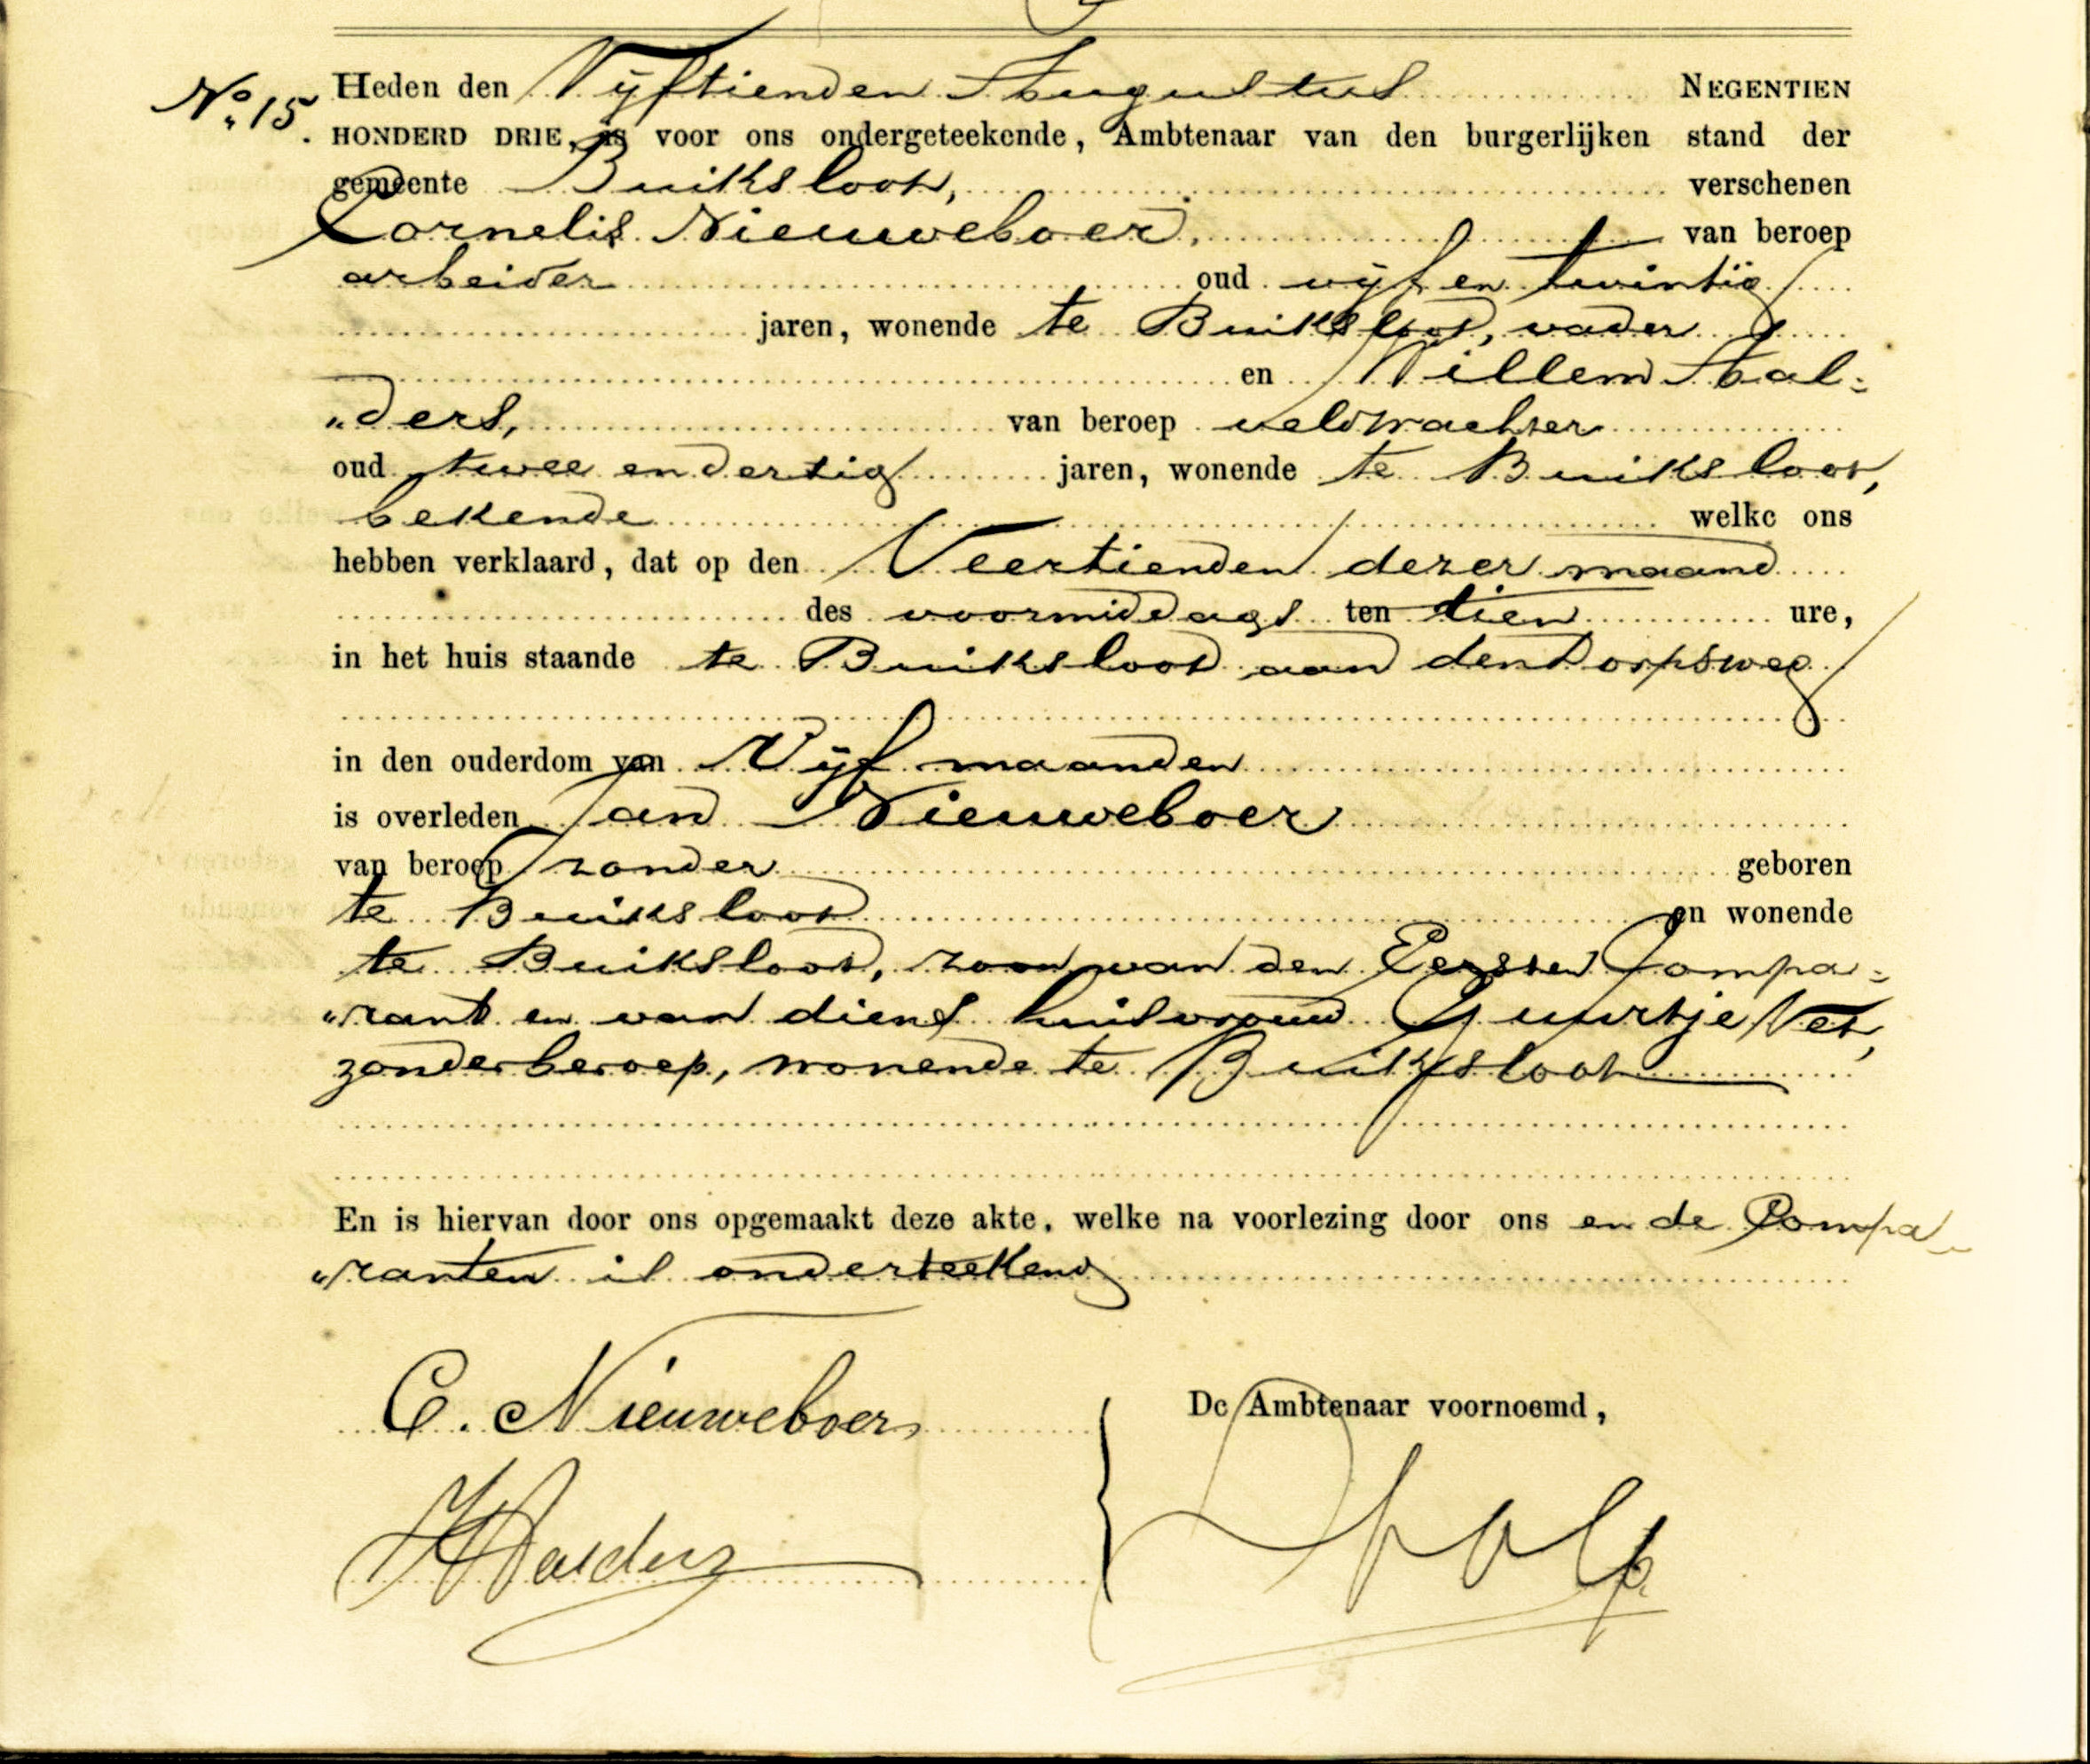 No. 15. Heden den Vijftienden Augustus NEGENTIEN
HONDERD DRIE, is voor ons ondergeteekende, Ambtenaar van den burgerlijken stand der
gemeente Buiksloot, verschenen
Cornelis Nieuweboer, van beroep
arbeider oud vijf en twintig
jaren, wonende te Buiksloot, vader
en Willem Aal=
"ders, van beroep veldwachter
oud twee en dertig jaren, wonende te Buiksloot,
bekende welke ons
hebben verklaard, dat op den Veertienden dezer maand
des voormiddags ten tien ure,
in het huis staande te Buiksloot aan den Dorpsweg
in den ouderdom van Vijf maanden
is overleden Jan Nieuweboer
van beroep zonder geboren
te Buiksloot en wonende
te Buiksloot, zoon van den Eersten Compa=
"rant en van diens huisvrouw Guurtje Vet,
zonder beroep, wonende te Buiksloot
En is hiervan door ons opgemaakt deze akte, welke na voorlezing door ons en de Compa=
"ranten is onderteekend
C. Nieuweboer
De Ambtenaar voornoemd,
WAalders